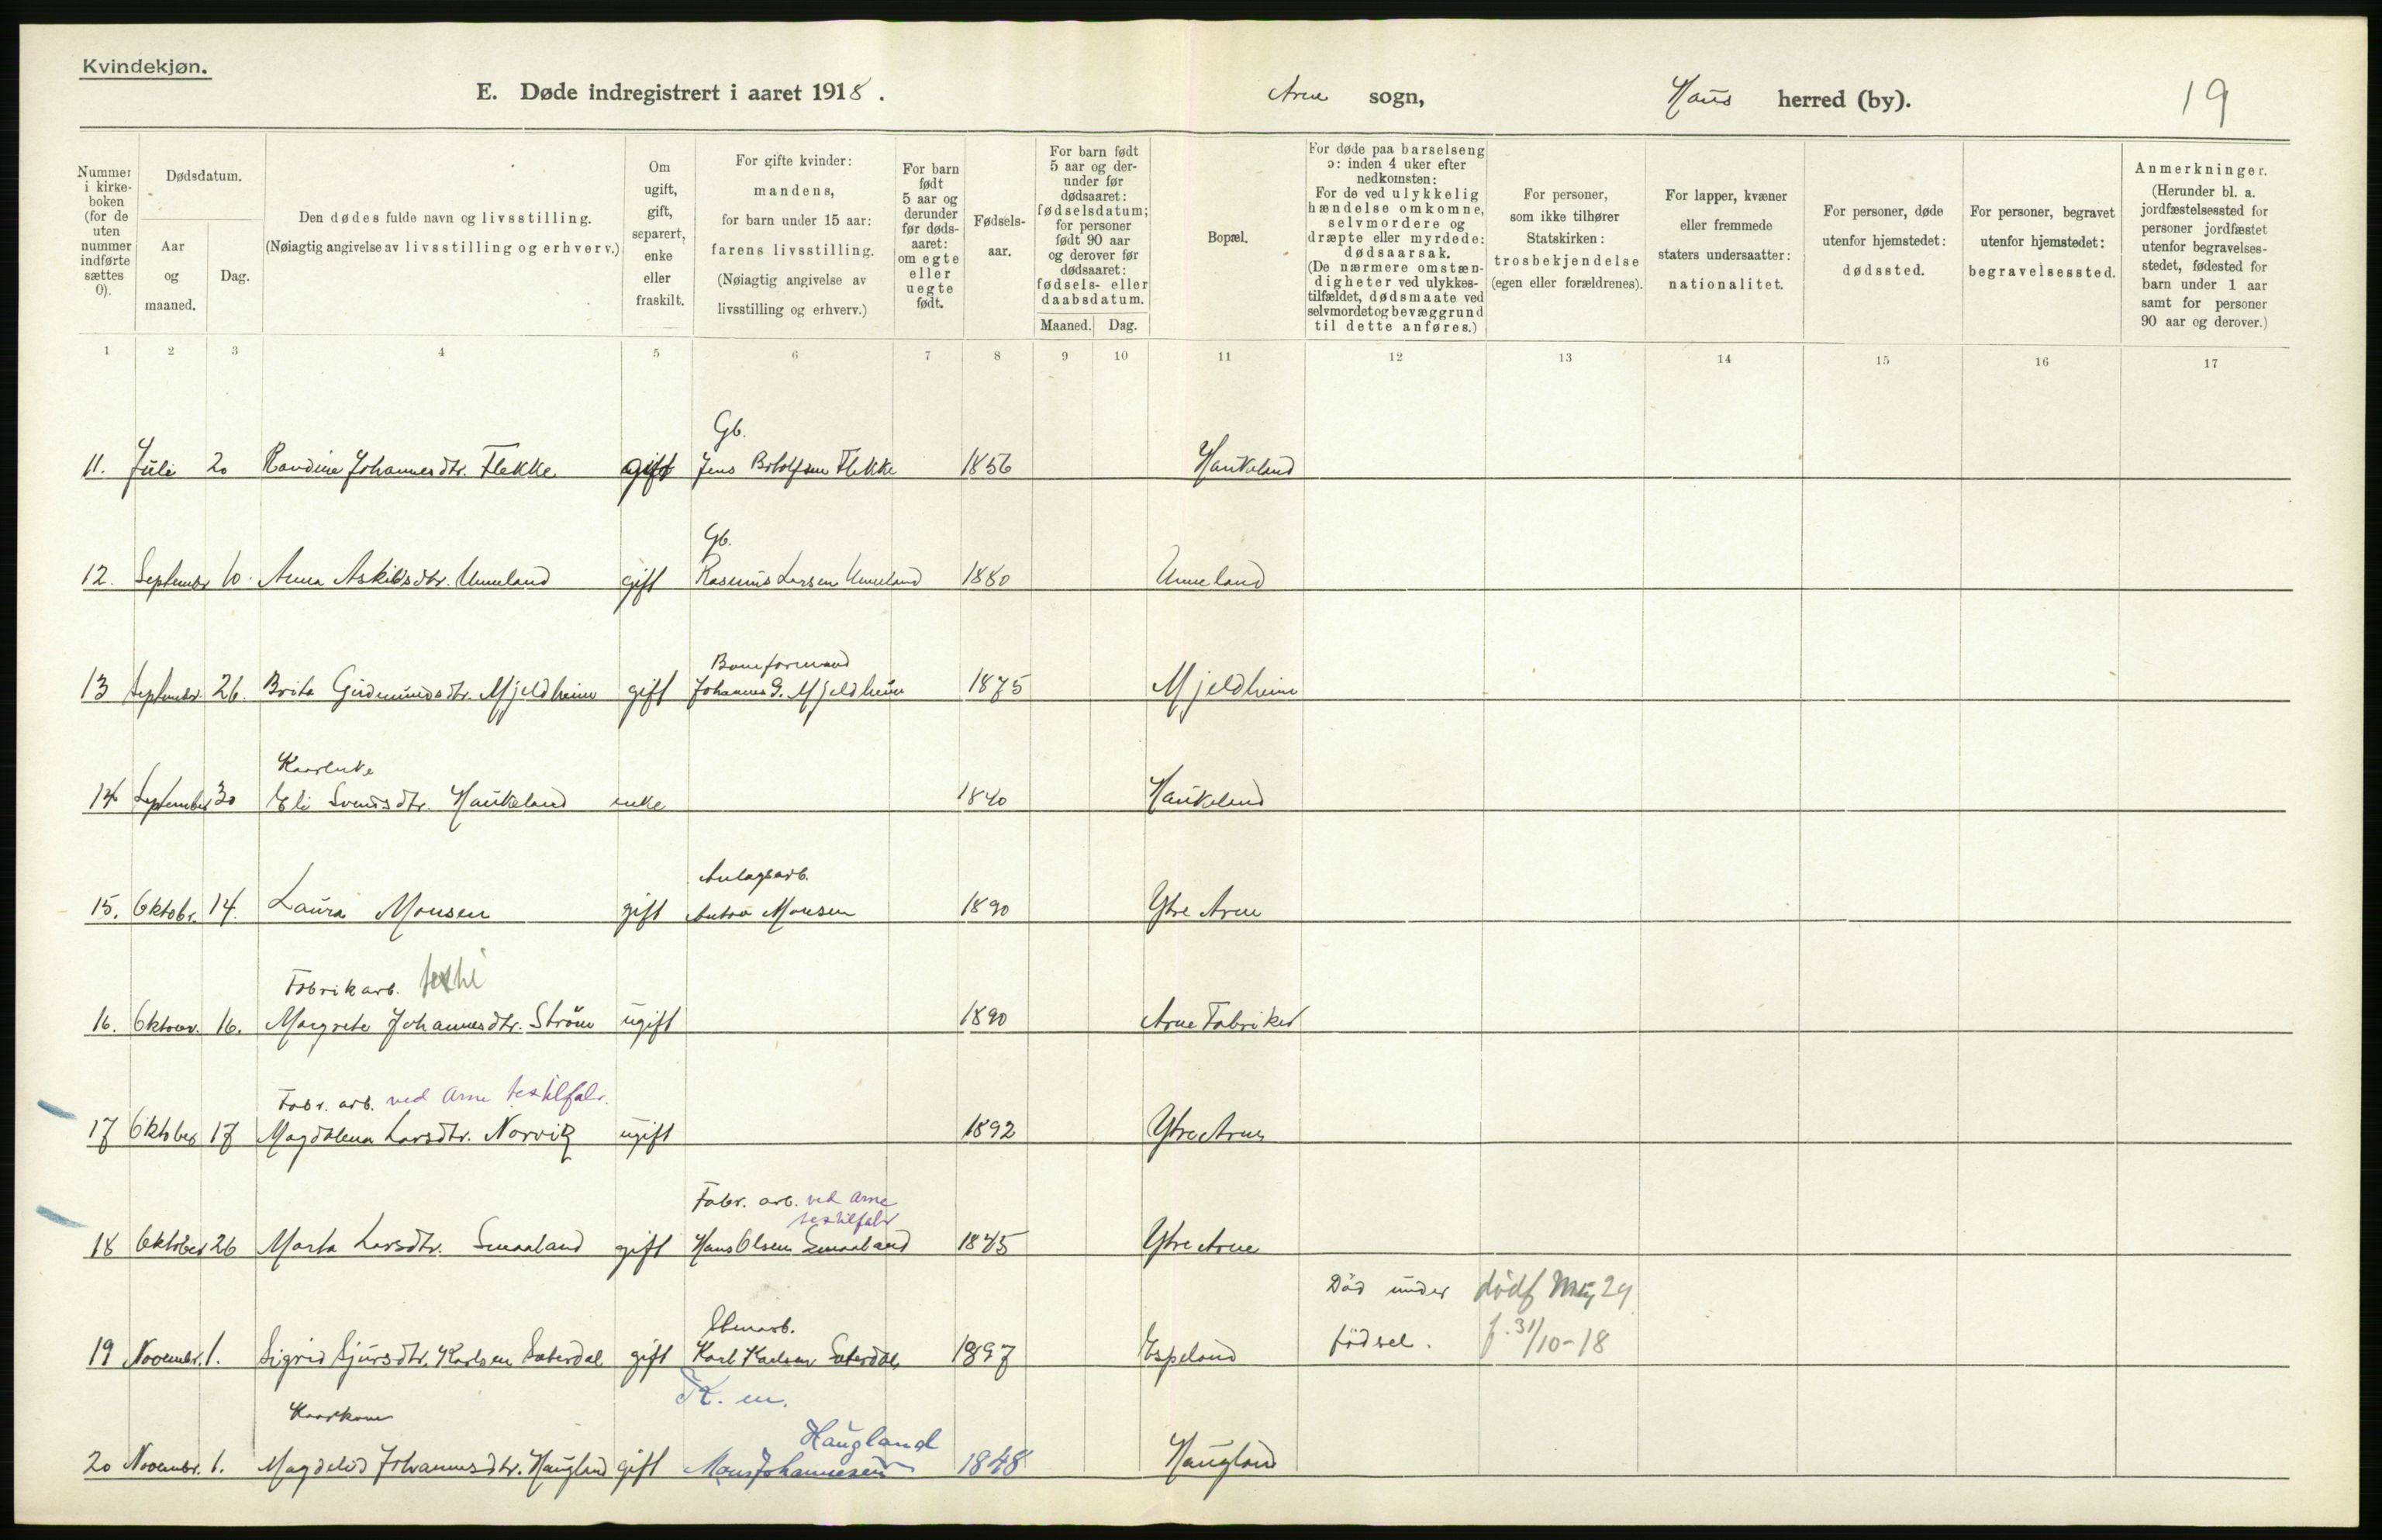 Kvindekjøn.
E. Døde indregistrert i aaret 1918.
Arne sogn,
Haus herred (by).
19
Nummer i kirkeboken (for de uten nummer indførte sættes 0).
Dødsdatum.
Aar og maaned.
Dag.
Den dødes fulde navn og livsstilling.
(Nøiagtig angivelse av livsstilling og erhverv.)
Om ugift, gift, separert, enke eller fraskilt.
For gifte kvinder: mandens, for barn under 15 aar: farens livsstilling. (Nøiagtig angivelse av livsstilling og erhverv.)
For barn født 5 aar og derunder før dødsaaret: om egte eller uegte født.
Fødselsaar.
For barn født 5 aar og derunder før dødsaaret: fødselsdatum; for personer født 90 aar og derover før dødsaaret: fødsels- eller daabsdatum.
Maaned. Dag.
Bopæl.
For døde paa barselseng ɔ: inden 4 uker efter nedkomsten: For de ved ulykkelig hændelse omkomne, selvmordere og dræpte eller myrdede: dødsaarsak. (De nærmere omstændigheter ved ulykkestilfældet, dødsmaate ved selvmordet og bevæggrund til dette anføres.)
For personer, som ikke tilhører Statskirken: trosbekjendelse (egen eller forældrenes).
For lapper, kvæner eller fremmede staters undersaatter: nationalitet.
For personer, døde utenfor hjemstedet: dødssted.
For personer, begravet utenfor hjemstedet: begravelsessted.
Anmerkninger. (Herunder bl. a. jordfæstelsessted for personer jordfæstet utenfor begravelsesstedet, fødested for barn under 1 aar samt for personer 90 aar og derover.)
1 2 3 4 5 6 7 8 9 10 11 12 13 14 15 16 17
Gb.
11. Juli 20 Johannesdtr. Flekke gift Jens Flekke 1856 Haukeland
Gb.
12. Septembr 10. Anna Askildsdtr. Unneland gift Rasmus Larsen Unneland 1880 Unneland
Baneformand
13 Septembr. 26. Brita Gudmundsdtr. Mjeldheim gift Johannes G. Mjeldheim 1875 Mjeldheim
Kaarenke
14 September 30 Eli Svendsdtr. Haukeland enke 1840 Haukeland
Anlagsarb.
15. Oktobr. 14. Laura Monsen gift Anton Monsen 1890 Ytre Arne
Fabrikarb. textil
16. Oktober. 16. Margrete Johannesdtr. Strøm ugift 1890 Arne Fabriker
Fabr. arb. ved Arne textilfabr.
17 Oktober 17 Magdalena Larsdtr. Norvik ugift 1892 Ytre Arne
Fabr. arb. ved Arne
textilfabr
18 Oktober 26 Marta Larsdtr. Smaaland gift Hans Olsen Smaaland 1845 Ytre Arne
Død under dødf
19 Novembr. 1. Sigrid Sjursdtr. Karlsen Sæterdal gift Karl Karlsen Sæterdal 1897 Espeland fødsel. f. 31/10-18
K. m.
Kaarkone Haugland
20 Novembr. 1. Magdeli Johannesdtr. Haugland gift Mons Johannesen 1848 Haugland